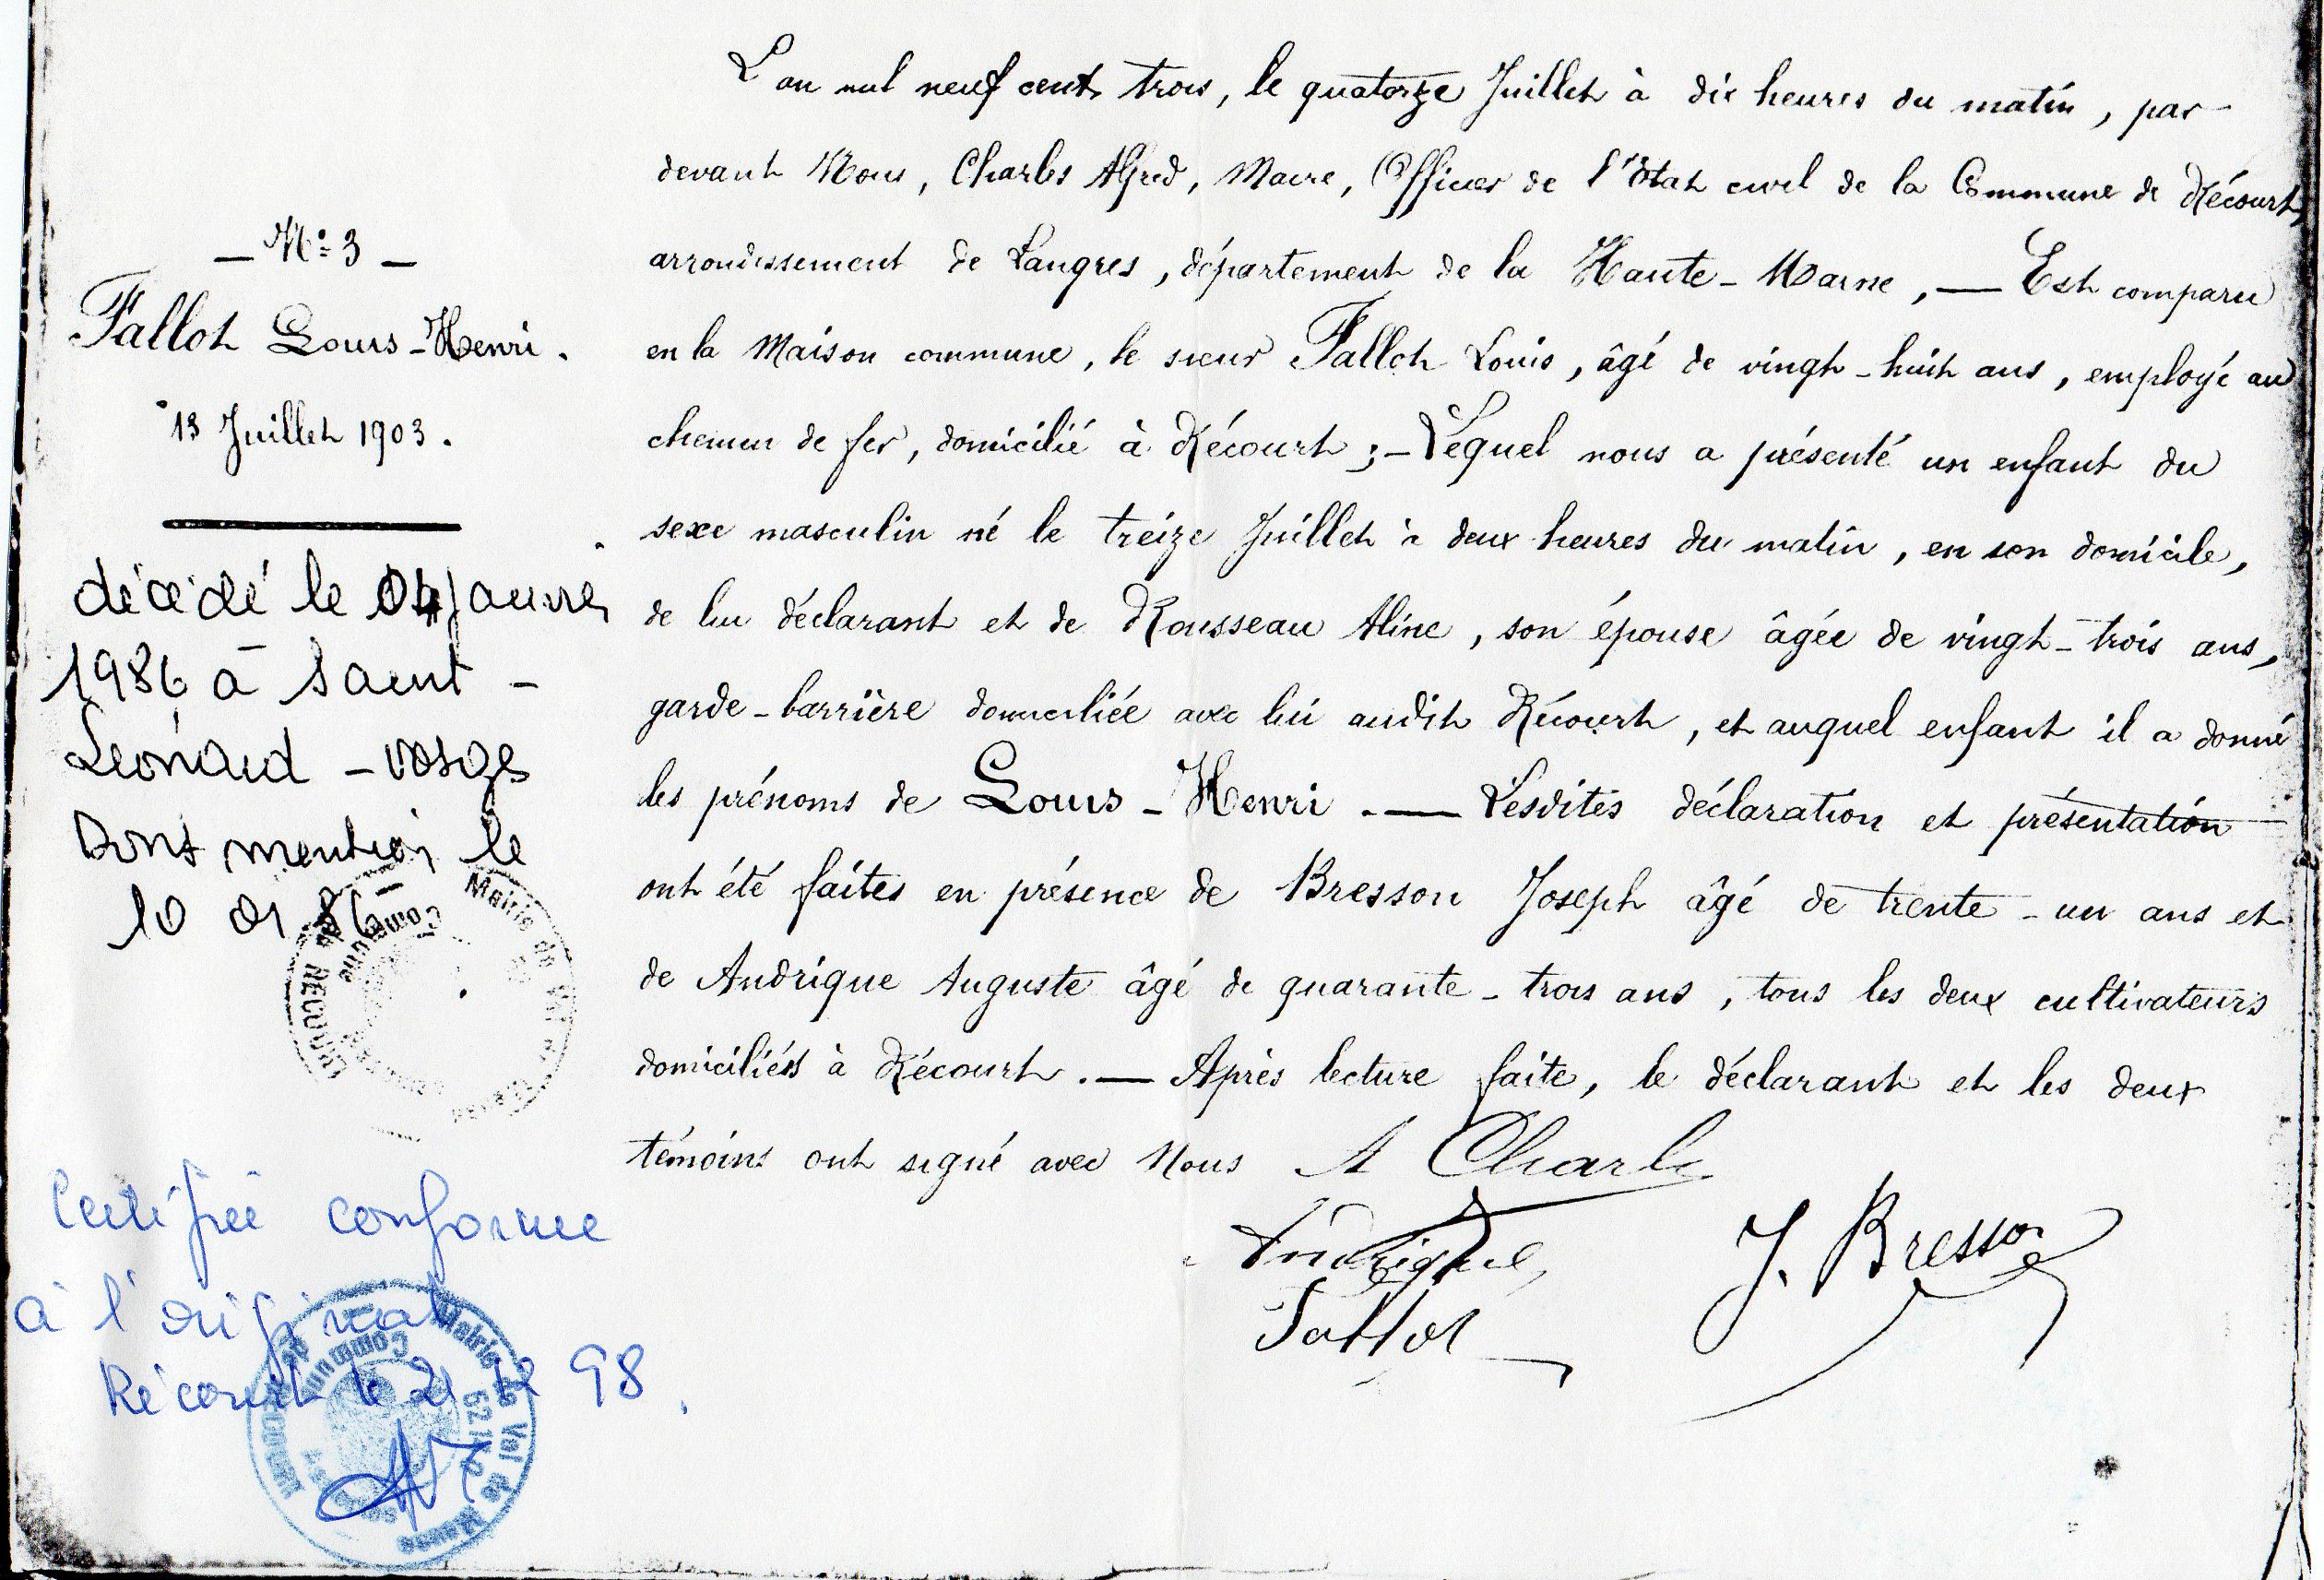 — N° 3 —
Fallot Louis-Henri.
13 Juillet 1903.
décédé le 04 janvier
1986 à Saint-
Léonard - Vosges
Dont mention le
10 01 86
Mairie de Val de
Commune de RÉCOURT
Certifiée conforme
à l'original
Récourt le 21 12 98.
Mairie de Val de Meuse
Commune de RÉCOURT
L'an mil neuf cent trois, le quatorze Juillet à dix heures du matin, par-
devant Nous, Charles Alfred, Maire, Officier de l'Etat civil de la Commune de Récourt,
arrondissement de Langres, département de la Haute-Marne, — Est comparu
en la Maison commune, le sieur Fallot Louis, âgé de vingt-huit ans, employé au
chemin de fer, domicilié à Récourt ; - Lequel nous a présenté un enfant du
sexe masculin né le treize Juillet à deux heures du matin, en son domicile,
de lui déclarant et de Rousseau Aline, son épouse âgée de vingt-trois ans,
garde-barrière domiciliée avec lui audit Récourt, et auquel enfant il a donné
les prénoms de Louis-Henri. — Lesdites déclaration et présentation
ont été faites en présence de Bresson Joseph âgé de trente-un ans et
de Andrique Auguste âgé de quarante-trois ans, tous les deux cultivateurs
domiciliés à Récourt. — Après lecture faite, le déclarant et les deux
témoins ont signé avec Nous A Charles
Andrique J. Bresson
Fallot